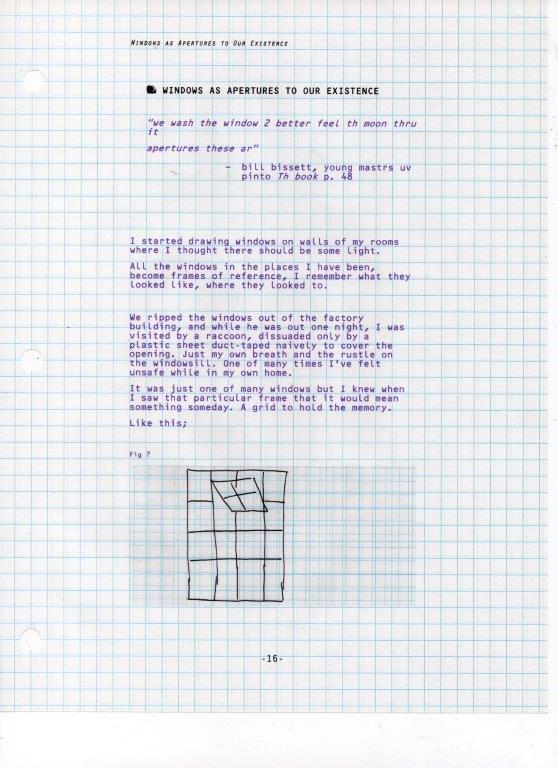 WINDOWS AS APERTURES TO OUR EXISTENCE
WINDOWS AS APERTURES TO OUR EXISTENCE
"we wash the window 2 better feel th moon thru
it
apertures these ar"
– bill bissett, young mastrs uv
pinto Th book p. 48
I started drawing windows on walls of my rooms
where I thought there should be some light.
All the windows in the places I have been,
become frames of reference, I remember what they
looked like, where they looked to.
We ripped the windows out of the factory
building, and while he was out one night, I was
visited by a raccoon, dissuaded only by a
plastic sheet duct-taped naively to cover the
opening. Just my own breath and the rustle on
the windowsill. One of many times I've felt
unsafe while in my own home.
It was just one of many windows but I knew when
I saw that particular frame that it would mean
something someday. A grid to hold the memory.
Like this;
Fig 7
-16-